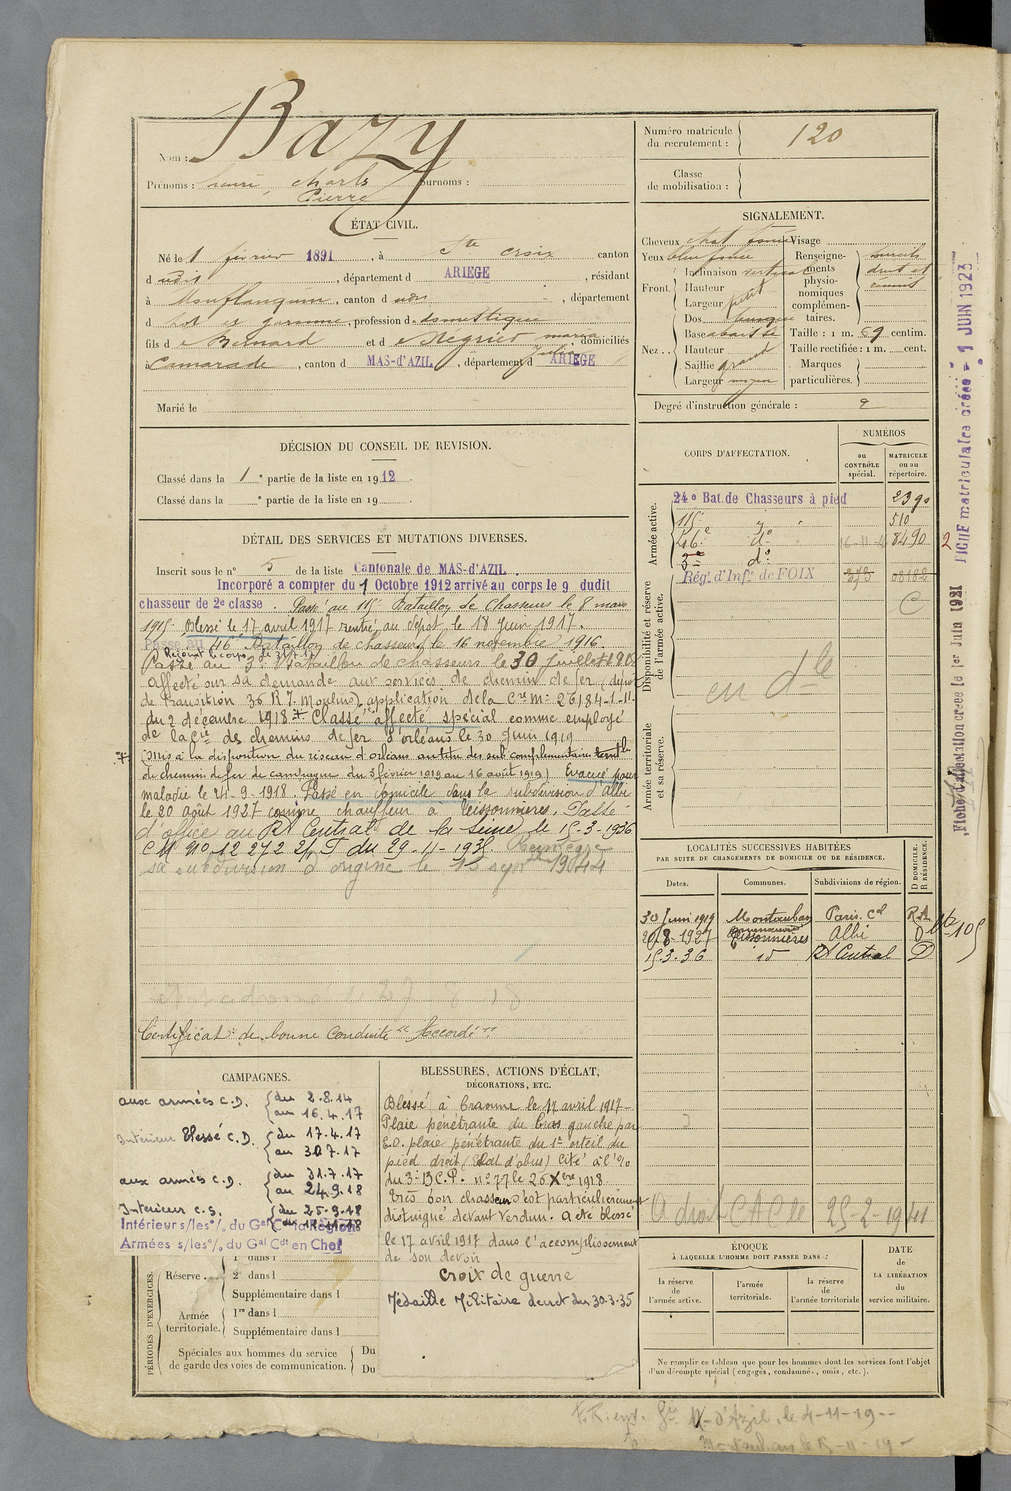 Nom : Bazy
Prénoms : henri, charles Surnoms :
Pierre
Numéro matricule
du recrutement : 120
Classe
de mobilisation :
ÉTAT CIVIL.
Né le 1 février 1891, à Ste croix canton
d udit, département d ARIEGE, résidant
à Monflanquin, canton d udit, département
d lot et garonne, profession d domestique
fils d e Bernard et d e Régnié maria domiciliés
à Camarade, canton d MAS-d'AZIL, département d ARIEGE
Marié le
SIGNALEMENT.
Cheveux chat foncé Visage
Yeux bleu foncé
Front. Inclinaison vertical
Hauteur
Largeur petit
Nez.. Dos
Base abaissée
Hauteur
Saillie grand
Largeur moyen
Renseignements physionomiques complémentaires. sourcils
droit et
Taille : 1 m. 69 centim.
Taille rectifiée : 1 m. cent.
Marques
particulières.
Degré d'instruction générale : 2
DÉCISION DU CONSEIL DE REVISION.
Classé dans la 1e partie de la liste en 1912.
Classé dans la e partie de la liste en 19
DÉTAIL DES SERVICES ET MUTATIONS DIVERSES.
Inscrit sous le n° 5 de la liste Cantonale de MAS-d'AZIL.
Incorporé a compter du 1 Octobre 1912 arrivé au corps le 9 dudit
chasseur de 2e classe. Passé au 115e Bataillon de Chasseurs le 8 mars
1915. Blessé le 17 avril 1917 rentré au dépot le 18 Juin 1917.
Passé au 46e Bataillon de chasseurs le 16 novembre 1916
Rejoint le corps le 31.7.17
Passé au 3e Bataillon de chasseurs le 30 Juillet 1918
Affecté sur sa demande aux services de chemin de fer (dépôt
de transition 36 R.I. Moulins) application de la Cre Mlle 26184-1-11-
du 2 décembre 1918 Classé affecté spécial comme employé
de la Cie des chemins de fer d'orléans le 30 Juin 1919
(Mis à la disposition du réseau d'orléans au titre des sub complémentaire territle
de chemin de fer de campagne du 5 février 1919 au 16 août 1919) Evacué pour
maladie le 24-9-1918. Passé en domicile dans la subdivision d'Albi
le 20 Août 1927 comme chauffeur à Tessonnières. Passé
d'office au Rt Central de la Seine le 15-3-1936
CM 910.12 272 2/I du 29-11-1935. Réintégré
sa subdivision d'origine le 15 sept 1944
Certificat de bonne conduite "Accordé"
CORPS D'AFFECTATION.
NUMÉROS
au
CONTRÔLE
spécial.
MATRICULE
ou au
répertoire.
Armée active.
24e Bat. de Chasseurs à pied 2390
115e do 510
46e do 16-11-16 8490
3e do
Disponibilité et réserve
de l'armée active.
Régt d'Infie de FOIX 273 00182
C
en dle
Armée territoriale
et sa réserve.
LOCALITÉS SUCCESSIVES HABITÉES
PAR SUITE DE CHANGEMENTS DE DOMICILE OU DE RÉSIDENCE.
Dates. Communes. Subdivisions de région. D DOMICILE. R RÉSIDENCE.
30 Juin 1919 Montauban Paris. Cal R.A
20-8-1927 Tessonnières Albi D
15.3.36 id Rt Central D
A droit CAC le 25-2-1941
CAMPAGNES.
aux armées C.D. du 2.8.14
au 16.4.17
Intérieur Blessé C.D. du 17.4.17
au 30.7.17
aux armées C.D. du 31.7.17
au 24.9.18
Intérieur C.S. du 25-9-18
Intérieur s/les o/o du Gal Cdt la Région
Armées s/les o/o du Gal Cdt en Chef
PÉRIODES D'EXERCICES.
Réserve. 1e dans l
2e dans l
Supplémentaire dans l
Armée
territoriale. 1re dans l
Supplémentaire dans l
Spéciales aux hommes du service
de garde des voies de communication. Du
Du
BLESSURES, ACTIONS D'ÉCLAT,
DÉCORATIONS, ETC.
Blessé à Craonne le 17 avril 1917-
Plaie pénétrante du bras gauche par
E.O. plaie pénétrante du 1er orteil du
pied droit (Eclat d'obus) Cité à l'o/o
du 3e B.C.P. no 77 le 26 Xbre 1918
Très bon chasseur s'est particulièrement
distingué devant Verdun. A été blessé
le 17 avril 1917 dans l'accomplissement
de son devoir
Croix de guerre
Médaille Militaire décret du 30-3-35
ÉPOQUE
À LAQUELLE L'HOMME DOIT PASSER DANS :
la réserve
de
l'armée active.
l'armée
territoriale.
la réserve
de
l'armée territoriale
DATE
de
LA LIBÉRATION
du
service militaire.
Ne remplir ce tableau que pour les hommes dont les services font l'objet
d'un décompte spécial (engagés, condamnés, omis, etc.).
FICHE matriculaire créée - 1 JUIN 1923
Fiche d'affectation créée le 1er Juin 1921
2
105
Mas-d'Azil, le 4-11-19
Montauban le